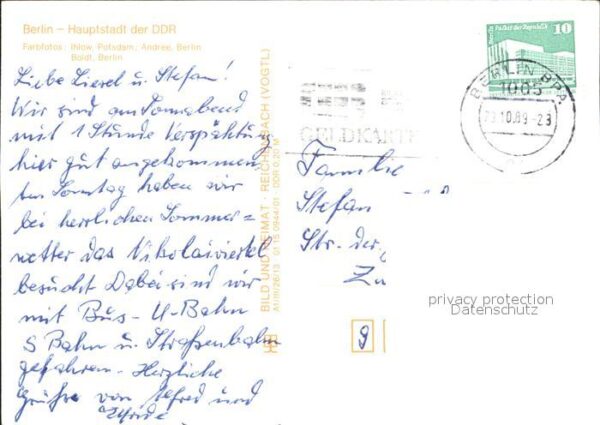 Berlin – Hauptstadt der DDR
Farbfotos: Ihlow, Potsdam; Andree, Berlin
Boldt, Berlin
Liebe Liesel u. Stefan!
Wir sind am Sonnabend
mit 1 Stunde Verspähtung
hier gut angekommen
Am Sonntag haben wir
bei herrlichen Sommer=
wetter das Nikolaiviertel
besucht Dabei sind wir
mit Bus- U-Bahn
S Bahn u. Straßenbahn
gefahren. Herzliche
Grüße von Alfred und
BILD UND HEIMAT REICHENBACH (VOGTL)
A1/III/26/13 01 15 0944/01 DDR 0,20 M
10
BERLIN BPA
1085
GELDKARTE
Familie
Stefan
Str. der
privacy protection
Datenschutz
9